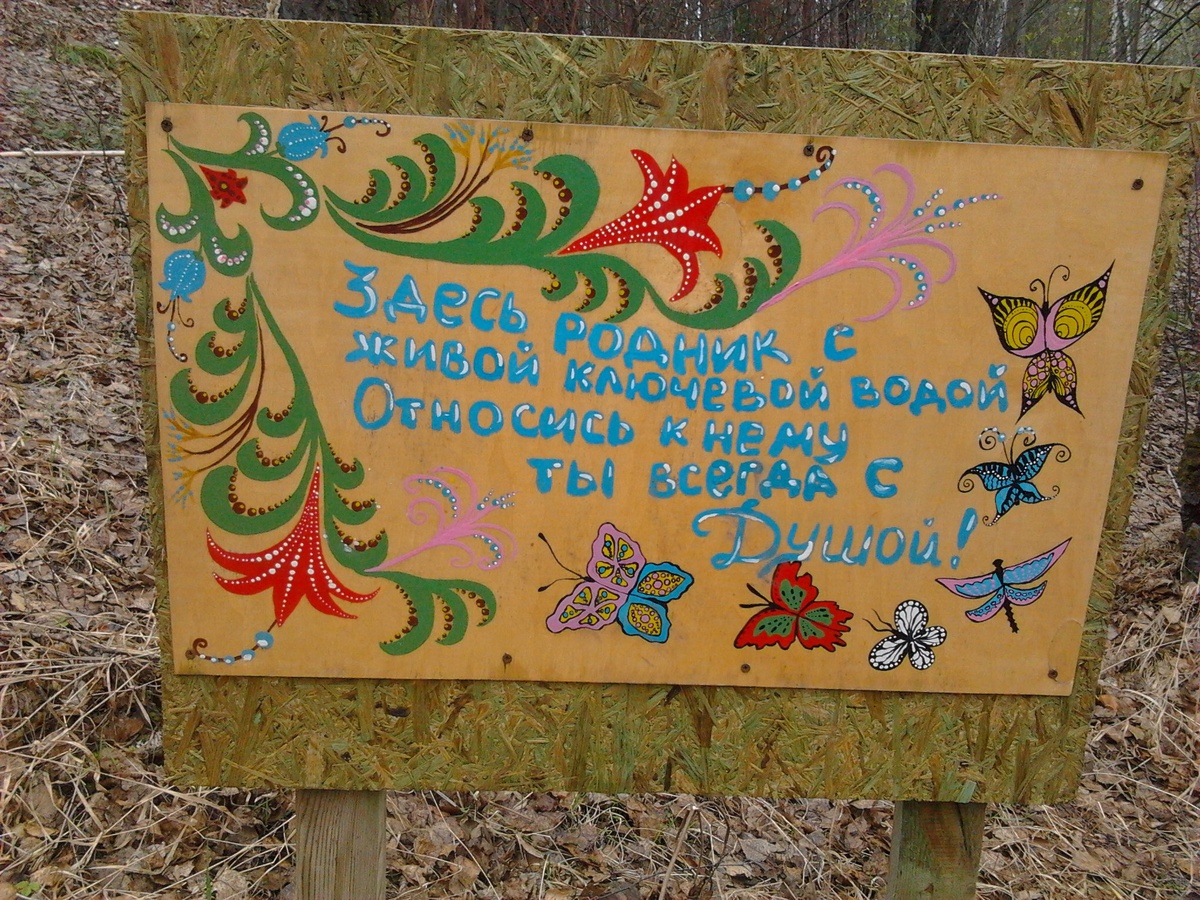 Здесь родник с
живой ключевой водой
Относись к нему
ты всегда с
Душой!